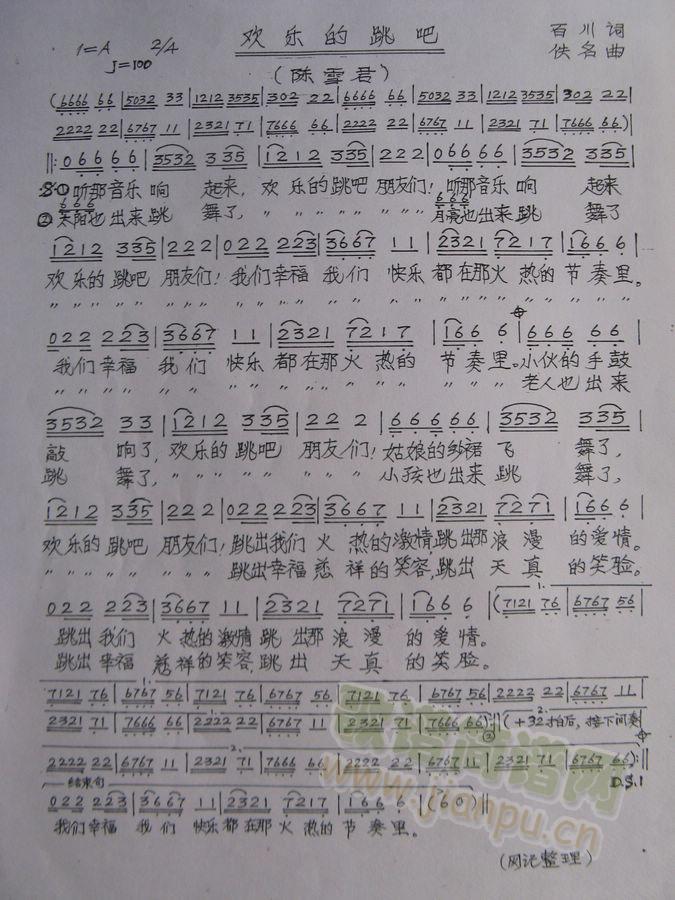 欢乐的跳吧
1=A 2/4
J=100
百川词
佚名曲
(陈雪君)
(6666 66|5032 33|1212 3535|302 22|6666 66|5032 33|1212 3535|302 22
2222 22|6767 11|2321 71|7666 66|2222 22|6767 11|2321 71|7666 66)
‖:066 66|3532 335|1212 335|222|066 66|3532 335
①听那音乐响 起来，欢乐的跳吧 朋友们！听那音乐响 起来
②也出来跳 舞了，〃 〃 〃 〃 〃 〃 〃 月亮也出来跳 舞了
1212 335|222|022 223|3667 11|2321 7217|166 6
欢乐的跳吧 朋友们！我们幸福 我们 快乐都在那火热的节奏里。
022 223|3667 11|2321 7217|166 6|666 66
我们幸福 我们 快乐都在那火热的 节奏里。小伙的手鼓
老人也出来
3532 33|1212 335|22 2|66666|3532 335
敲 响了，欢乐的跳吧 朋友们！姑娘的纱裙 飞 舞了，
跳 舞了，〃 〃 〃 〃 〃 〃 〃 小孩也出来 跳 舞了，
1212 335|222|022 223|3667 11|2321 7271|166 6
欢乐的跳吧 朋友们！跳出我们火热的激情，跳出那浪漫的爱情。
〃 〃 〃 〃 〃 〃 〃 跳出幸福慈祥的笑容，跳出天真的笑脸。
022 223|3667 11|2321 7271|166 6|(7121 76|6767 56|
跳出我们 火热的激情 跳出那浪漫的爱情。
跳出幸福 慈祥的笑容，跳出 天真的笑脸。
7121 76|6767 56|7121 76|6767 56|7121 76|6767 56|2222 22|6767 11|
2321 71|7666 66|2222 22|6767 11|2321 71|7666 66):‖(+32拍后，接下间奏
2222 22|6767 11|2321 71|7666 66|2222 22|6767 11|2321 71|6767 66):‖
D.S.1
结束句
022 223|3667 11|2321 7217|166 6|(60)‖
我们幸福 我们 快乐都在那火热的节奏里。
(网记整理)
歌谱简谱网
www.jianpu.cn